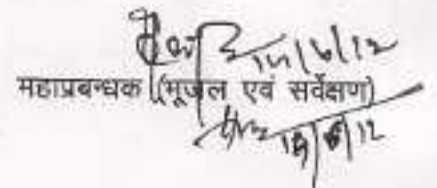 14/6/12
महाप्रबन्धक (भूजल एवं सर्वेक्षण)
/6/12